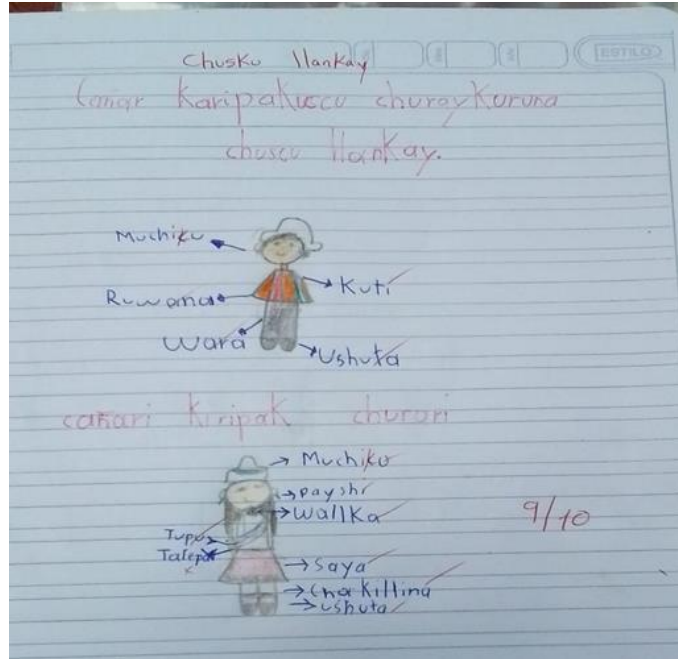 ESTILO
Chusku llankay
Cañar Karipakuscu churaykuruna
chuscu llankay.
Muchiku
Kuti
Ruwana
Wara
Ushuta
cañari Kiripak churari
Muchiku
payshi
Wallka
9/10
Tupu
Saya
Ushuta